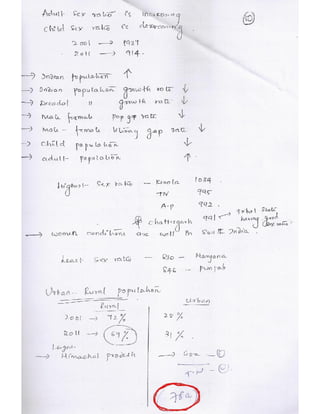 Adult Sex ratio is increasing
Child Sex ratio is decreasing
2001 → 1927
2011 → 914.
→ Indian population ↑
→ Indian population growth rate ↓
→ Decadal " growth rate ↓
→ Male female pop gap rate ↓
→ Male - female literacy gap rate ↓
→ Child population ↓
→ adult - population ↑
Highest - Sex ratio - Kerala 1084
TN 995
A.P 992.
Chattisgarh 991 → Tribal State having good Sex ratio.
→ women conditions are well in South India.
Least Sex ratio - 830 - Haryana
846 - Punjab
Urban - Rural population
Rural Urban
2001 → 72% 28%
2011 → 69% 31%
→ Himachal pradesh → Goa - ①
T.N - ②